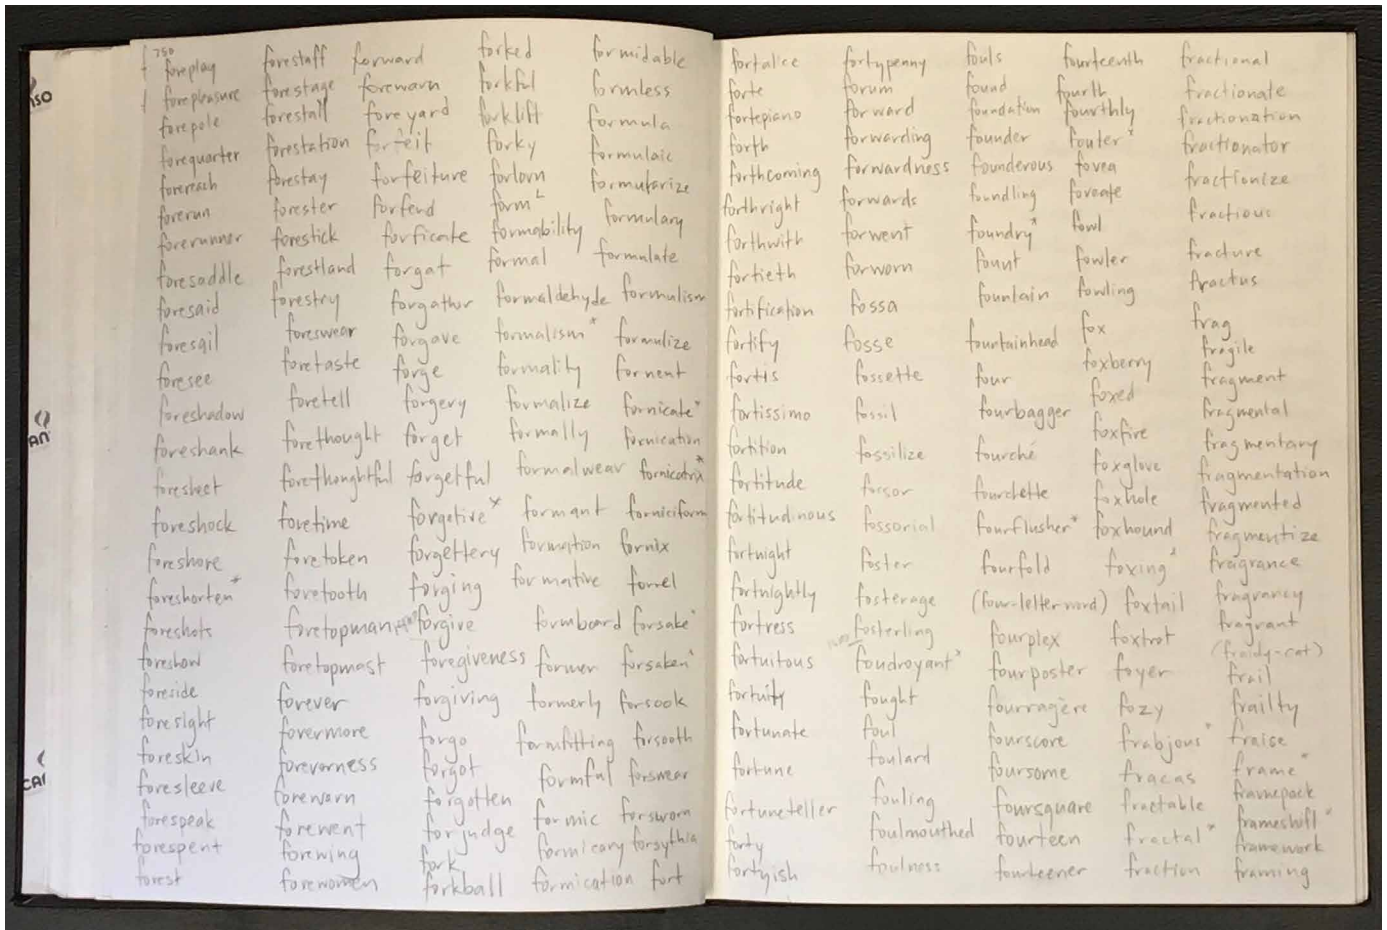 750
foreplay
forepleasure
forepole
forequarter
forereach
forerun
forerunner
foresaddle
foresaid
foresail
foresee
foreshadow
foreshank
foresheet
foreshock
foreshore
foreshorten*
foreshots
foreshow
foreside
foresight
foreskin
foresleeve
forespeak
forespent
forest
forestaff
forestage
forestall
forestation
forestay
forester
forestick
forestland
forestry
foreswear
foretaste
foretell
forethought
forethoughtful
foretime
foretoken
foretooth
foretopman
foretopmast
forever
forevermore
foreverness
forewarn
forewent
forewing
forewomen
forward
forewarn
foreyard
forfeit
forfeiture
forfend
forficate
forgat
forgather
forgave
forge
forgery
forget
forgetful
forgetive*
forgettery
forging
forgive
foregiveness
forgiving
forgo
forgot
forgotten
forjudge
fork
forkball
forked
forkful
forklift
forky
forlorn
form
formability
formal
formaldehyde
formalism*
formality
formalize
formally
formalwear
formant
formation
formative
formboard
former
formerly
formfitting
formful
formic
formicary
formication
formidable
formless
formula
formulaic
formularize
formulary
formulate
formulism
formulize
fornent
fornicate*
fornication
fornicatrix*
forniciform
fornix
forrel
forsake
forsaken
forsook
forsooth
forswear
forsworn
forsythia
fort
fortalice
forte
fortepiano
forth
forthcoming
forthright
forthwith
fortieth
fortification
fortify
fortis
fortissimo
fortition
fortitude
fortitudinous
fortnight
fortnightly
fortress
fortuitous
fortuity
fortunate
fortune
fortuneteller
forty
fortyish
fortypenny
forum
forward
forwarding
forwardness
forwards
forwent
forworn
fossa
fosse
fossette
fossil
fossilize
fossor
fossorial
foster
fosterage
fosterling
foudroyant*
fought
foul
foulard
fouling
foulmouthed
foulness
fouls
found
foundation
founder
founderous
foundling
foundry*
fount
fountain
fountainhead
four
fourbagger
fourché
fourchette
fourflusher*
fourfold
(four-letter word)
fourplex
fourposter
fourragère
fourscore
foursome
foursquare
fourteen
fourteener
fourteenth
fourth
fourthly
fouter*
fovea
foveate
fowl
fowler
fowling
fox
foxberry
foxed
foxfire
foxglove
foxhole
foxhound
foxing
foxtail
foxtrot
foyer
fozy
frabjous*
fracas
fractable
fractal*
fraction
fractional
fractionate
fractionation
fractionator
fractionize
fractious
fracture
fractus
frag
fragile
fragment
fragmental
fragmentary
fragmentation
fragmented
fragmentize
fragrance
fragrancy
fragrant
(fraidy-cat)
frail
frailty
fraise
frame*
framepack
frameshift*
framework
framing